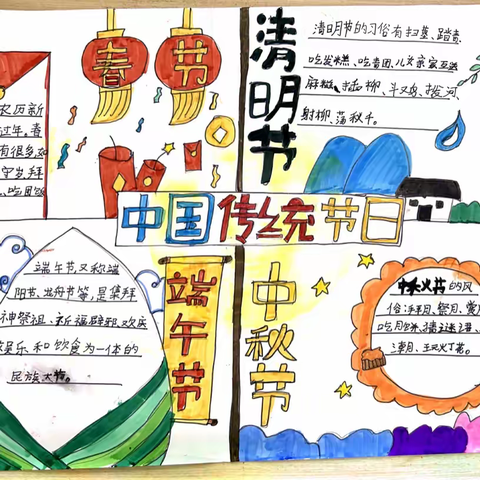 春节
农历新
过年。春
有很多,如
守岁、拜
、吃团饭
清明节
清明节的习俗有扫墓、踏青
吃发糕、吃青团、儿女亲家互送
麻糍、插柳、斗鸡、拔河
射柳、荡秋千。
中国传统节日
端午节又称端
阳节、龙舟节等,是集拜
神祭祖、祈福辟邪、欢庆
娱乐和饮食为一体的
民族大节。
端午节
中秋节
中秋节的风
俗:拜月、祭月、赏
吃月饼、猜谜语、